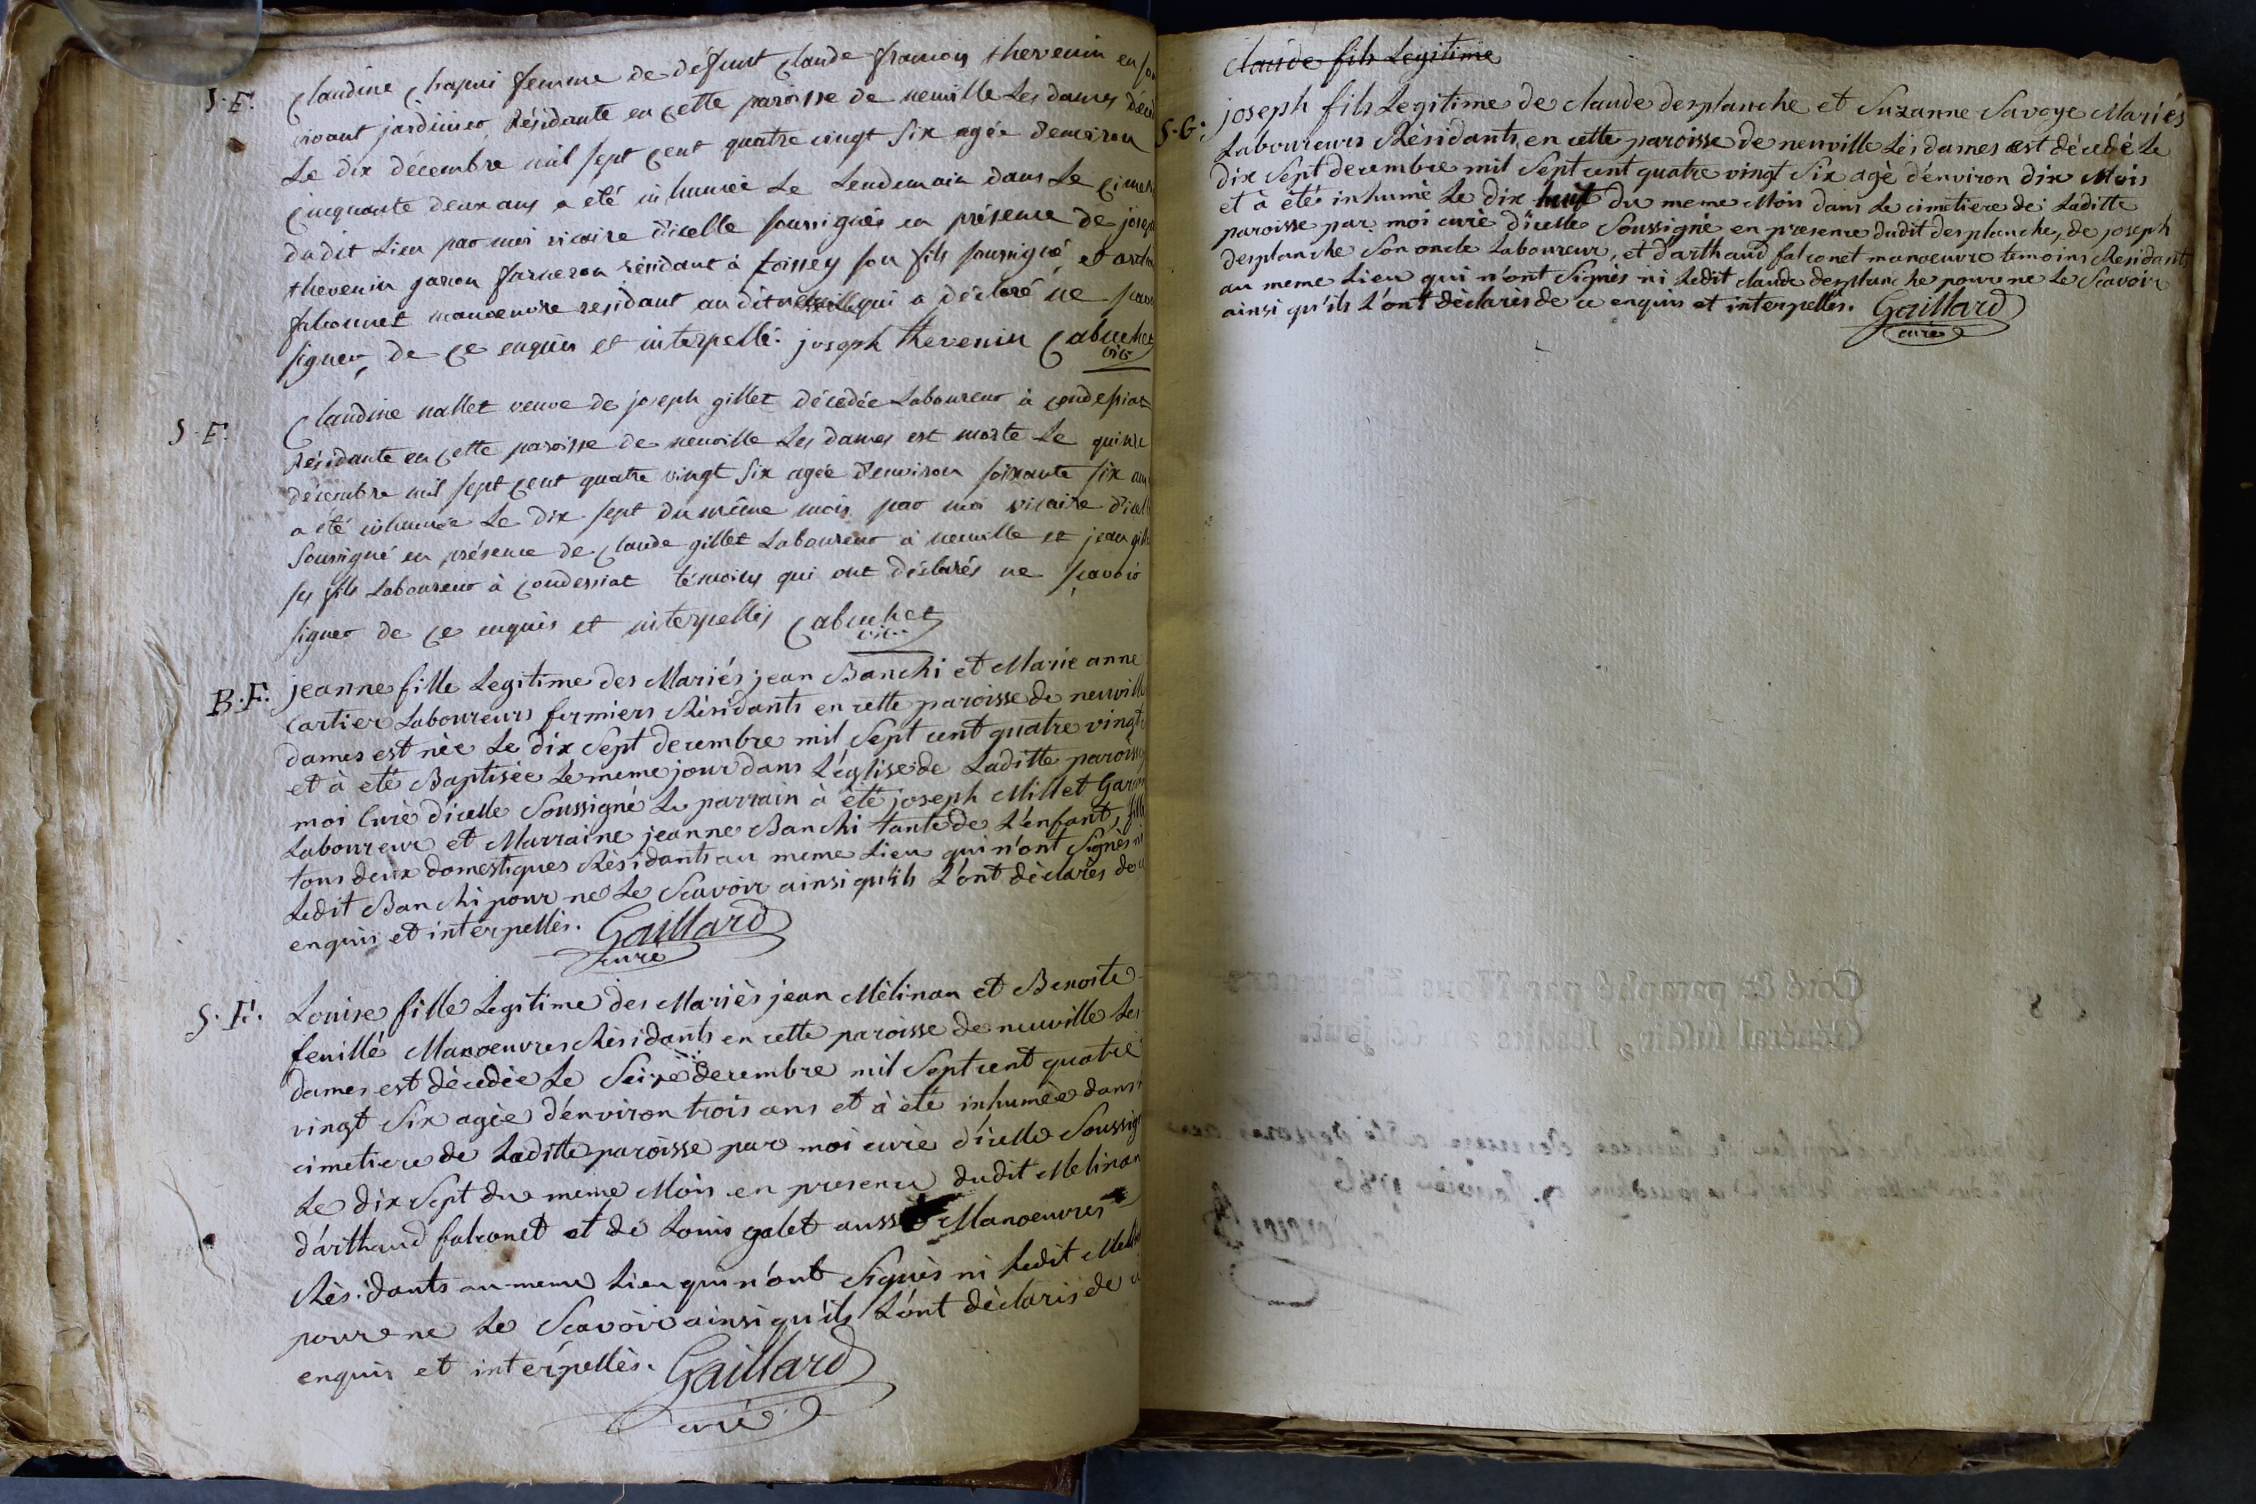 S. F. Claudine Chapui femme de défunt Claude françois thevenin en son
vivant jardinier, Résidante en cette paroisse de neuville Les dames
Le dix décembre mil sept cent quatre vingt six agée denviron
cinquante deux ans a été inhumée Le Lendemain dans Le
dudit Lieu par moi vicaire d'icelle soussignés en présence de
thevenin garcon résidant à son fils soussigné, et
falconnet manoeuvre residant au dit qui a déclaré ne
signer, de ce enquis et interpellé. joseph thevenin Cabuchet
vic
S. F. Claudine nallet veuve de joseph gillet décédée Laboureur à condessiat
Résidante en cette paroisse de neuville Les dames est morte Le quinze
décembre mil sept cent quatre vingt six agée d'environ soixante six
a été inhumée Le dix sept du même mois par moi vicaire
soussigné en présence de Claude gillet Laboureur à neuville et jean
ses fils Laboureur à condessiat témoins qui ont déclarés ne scavoir
signer de ce enquis et interpellés Cabuchet
vic
B. F. jeanne fille Legitime des Mariés jean Banchi et Marie anne
Cartier Laboureurs fermiers Résidants en cette paroisse de
dames est née Le dix sept decembre mil sept cent quatre vingt
et à eté Baptisée Le meme jour dans L'église de Laditte
moi Curé d'icelle Soussigné Le parrain à été joseph Millet
Laboureur et Marraine jeanne Banchi tante de L'enfant,
tous deux domestiques Résidants au meme Lieu qui n'ont Signés ni
Ledit Banchi pour ne Le Scavoir ainsi qu'ils L'ont déclarés
enquis et interpellés. Gaillard
curé
S. F. Louise fille Legitime des Mariés jean Mélinan et Benoite
feuillé Manoeuvres Résidants en cette paroisse de neuville Les
dames est décedée Le Seize decembre mil Sept cent quatre
vingt Six agée d'énviron trois ans et à été inhumée dans
cimetiere de Laditte paroisse par moi curé d'icelle
Le dix Sept du meme Mois en presence dudit Melinan
d'arthaud falconet et de Louis galet aussi Manoeuvres
Résidants au meme Lieu qui n'ont Signés ni Ledit
pour ne Le Scavoir ainsi qu'ils L'ont déclarés de
enquis et interpellés. Gaillard
curé
Claude fils Legitime
S. G. joseph fils Legitime de Claude desplanche et Suzanne Savoye Mariés
Laboureurs Résidants en cette paroisse de neuville Les dames est décedé Le
dix Sept decembre mil Sept cent quatre vingt Six agé d'énviron dix Mois
et à été inhumé Le dix huit du meme Mois dans Le cimetiere de Laditte
paroisse par moi curé d'icelle Soussigné en presence dudit desplanche, de joseph
desplanche Son oncle Laboureur, et d'arthaud falconet manoeuvre temoins Residants
au meme Lieu qui n'ont Signés ni Ledit claude desplanche pour ne Le Scavoir
ainsi qu'ils L'ont déclarés de ce enquis et interpellés. Gaillard
curé